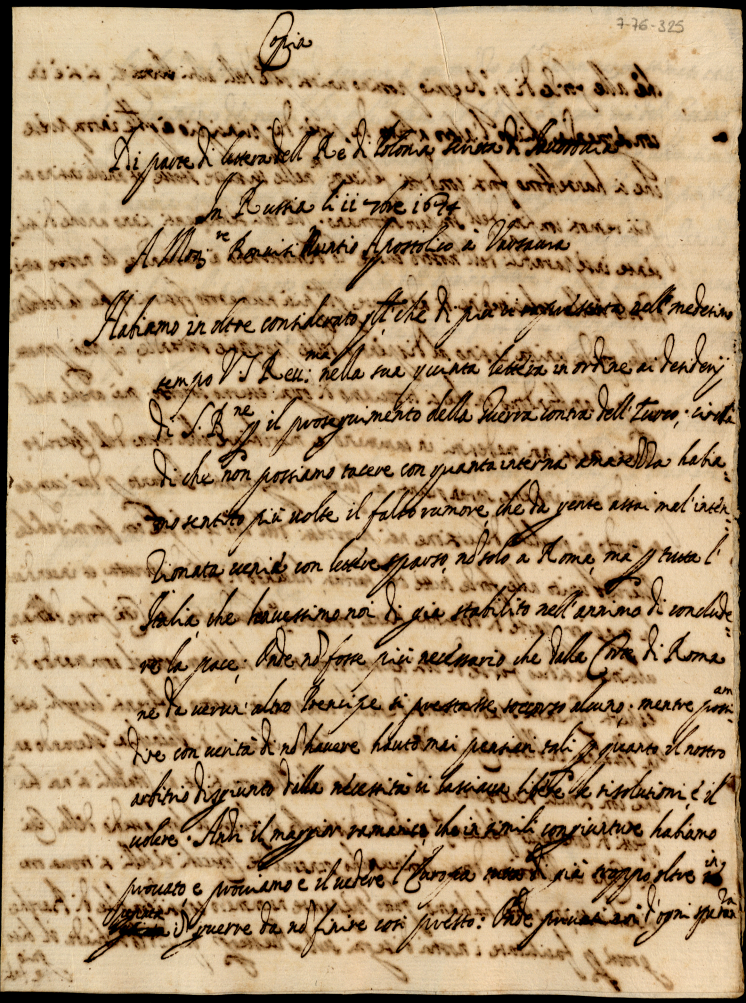 7-76-325
Copia
Di parte di lettera del Re di Polonia scritta di
In Russia li 11 7bre 1674
A Monsre Bonvisi Nuntio Apostolico a Varsavia
Habiamo in oltre considerato qto che di più ci nell medesimo
tempo V S Reu:ma nella sua quinta lettera in ordine ai desiderij
di S. Bne p il proseguimento della Guerra contra dell' Turco,
di che non possiamo tacere con quanta interna amarezza habia=
mo sentito più volte il falso rumore, che da gente assai mal' inten=
zionata venia con lettere sparso, nō solo a Roma, ma p tutta l'
Italia, che havessimo noi di già stabilito nell'animo di conclude=
re la pace; Onde nō fosse più necessario che dalla Corte di Roma
ne da verun' altro Prencipe si prestasse soccorso alcuno. mentre possiam
dire con verità di nō havere hauto mai pensieri tali p quanto il nostro
arbitrio disgiunto dalla necessità ci lasciava libere le risolutioni, e il
volere. Anzi il maggior ramarico che in simili congiunture habiamo
provato e proviamo e il vedere l'Europa già troppo oltre in
guerre da nō finire così presto: Onde d'ogni speran